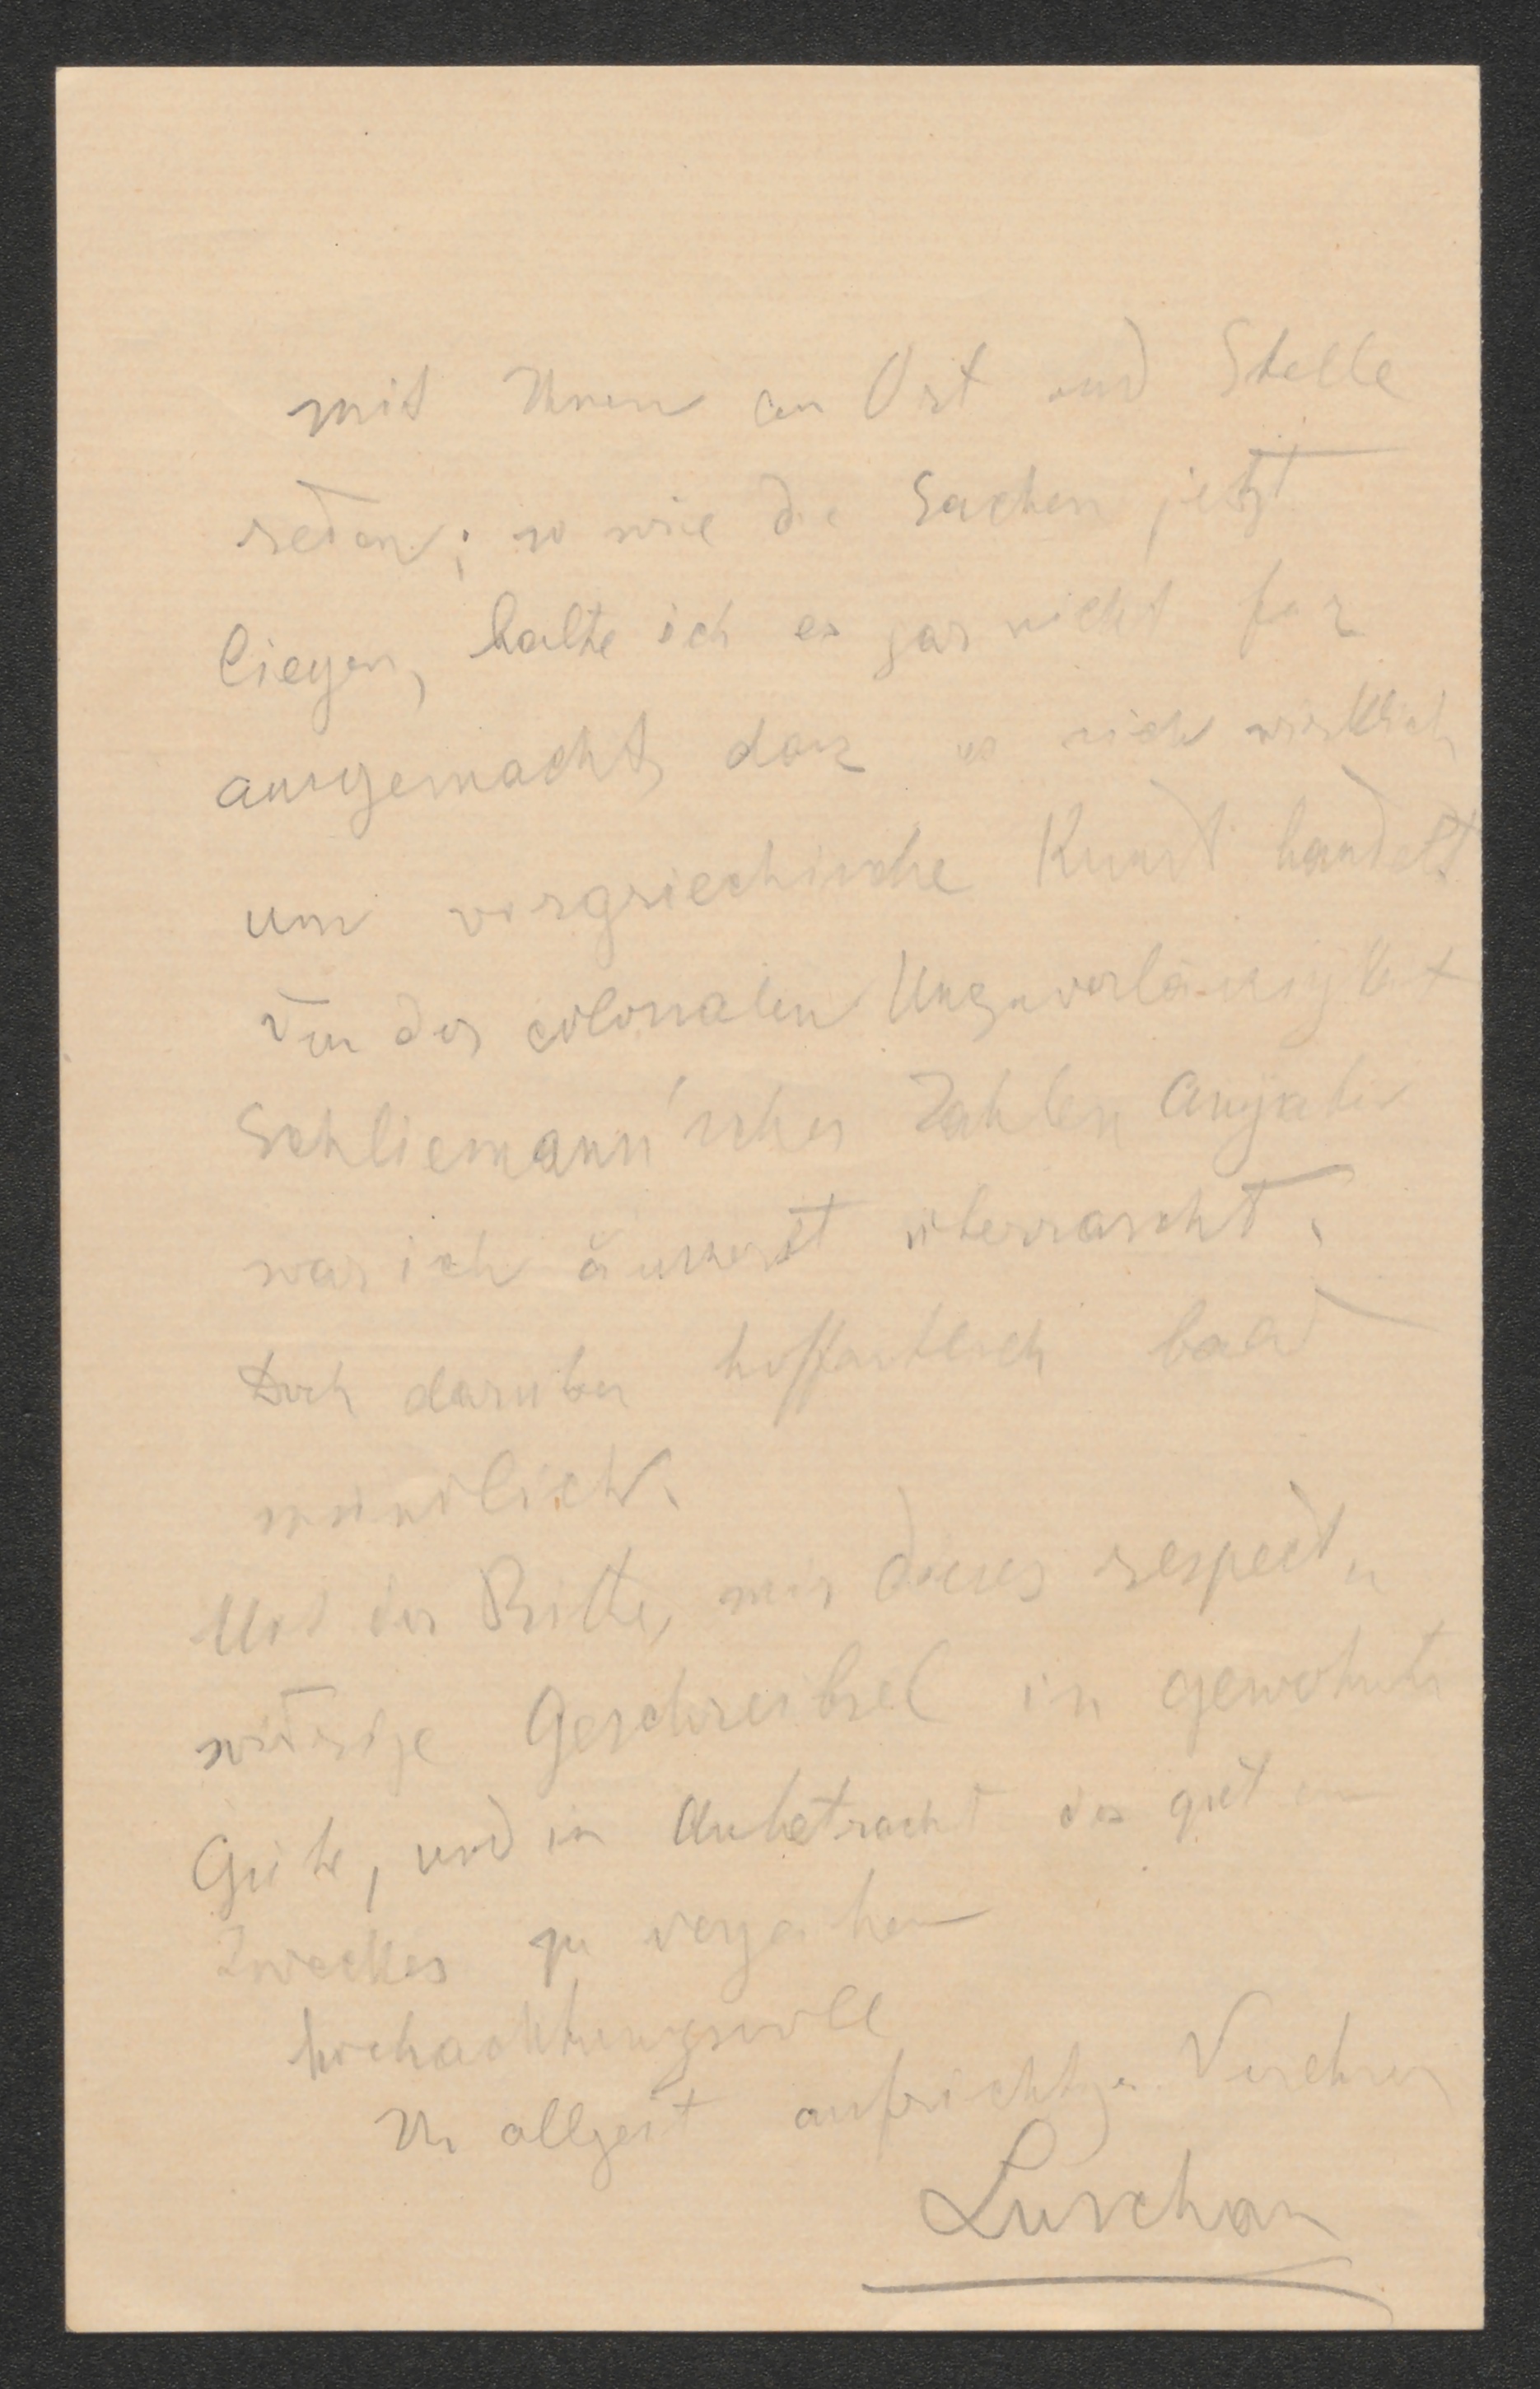 mit Ihnen an Ort und Stelle
reden; so wie die Sachen jetzt
liegen, halte ich es gar nicht für
ausgemacht, dasz es sich wirklich
um vorgriechische Kunst handelt.
Von der colossalen Unzuverlässigkeit
Schliemann'scher Zahlen Angaben
war ich äusserst überrascht.
Doch darüber hoffentlich bald
mündlich.
Mit der Bitte, mir dieses respect-
widrige Geschreibsel in gewohnter
Güte, und in Anbetracht des guten
Zweckes zu verzeihen
hochachtungsvoll
Ihr allzeit aufrichtiger Verehrer
Luschan